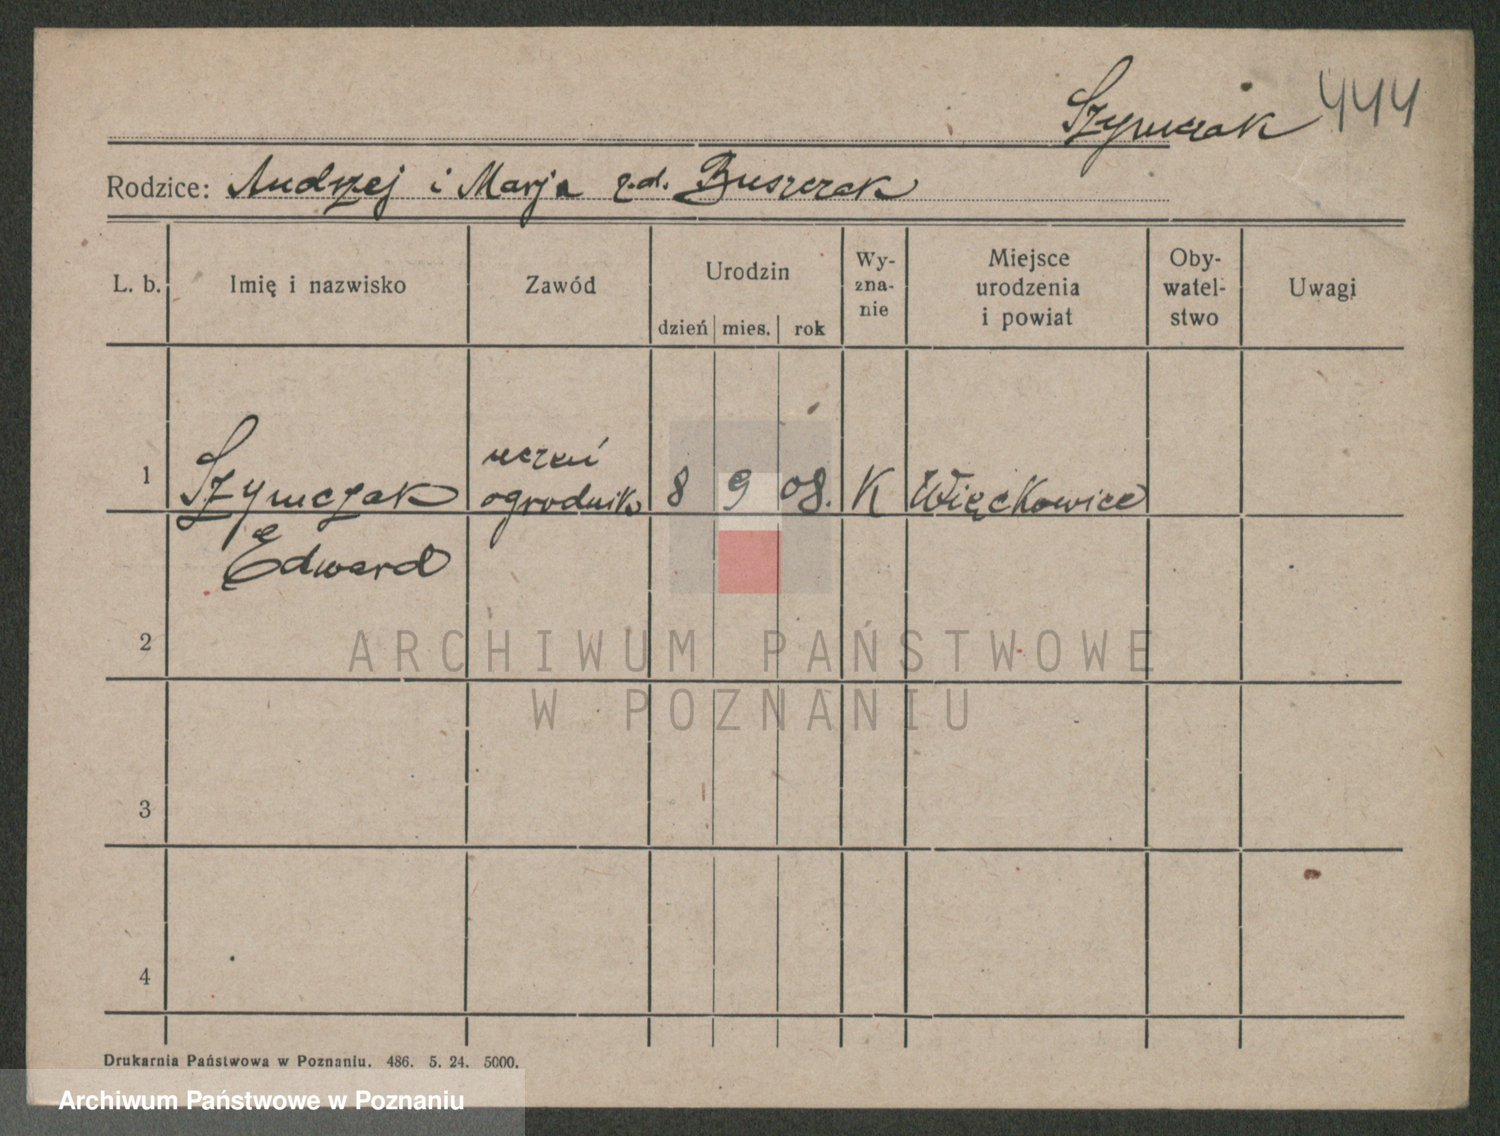 Szymczak 444
Rodzice: Andrzej i Marja z.d. Buszczak
L. b.
Imię i nazwisko
Zawód
Urodzin
dzień mies. rok
Wy-
zna-
nie
Miejsce
urodzenia
i powiat
Oby-
watel-
stwo
Uwagi
1
Szymczak
Edward
uczeń
ogrodnik
8 9 08.
K
Więckowice
2
ARCHIWUM PAŃSTWOWE
W POZNANIU
3
4
Drukarnia Państwowa w Poznaniu. 486. 5. 24. 5000.
Archiwum Państwowe w Poznaniu